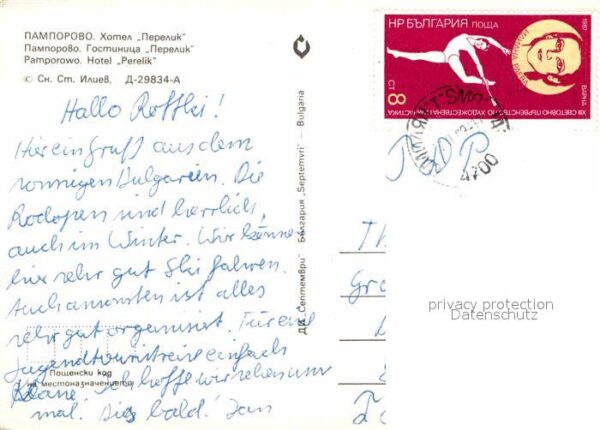 ПАМПОРОВО. Хотел „Перелик"
Пампорово. Гостиница „Перелик"
Pamporowo. Hotel „Perelik"
© Сн. Ст. Илиев. Д-29834-А
Hallo
Hier ein Gruß aus dem
sonnigen Bulgarien. Die
Rodopen sind herrlich,
auch im Winter. Wir können
hier sehr gut Ski fahren.
Auch ansonsten ist alles
sehr gut organisiert. Für eine
Jugendtouristreise einfach
Klasse. Ich hoffe wir sehen uns
mal. Bis bald! Jan
Пощенски код
на местоназначението
ДИ „Септември" България „Septemvri" – Bulgaria
НР БЪЛГАРИЯ ПОЩА
1987
ВАРНА
XIII СВЕТОВНО ПЪРВЕНСТВО ХУДОЖЕСТВЕНА ГИМНАСТИКА
СТ 8
4700
privacy protection
Datenschutz